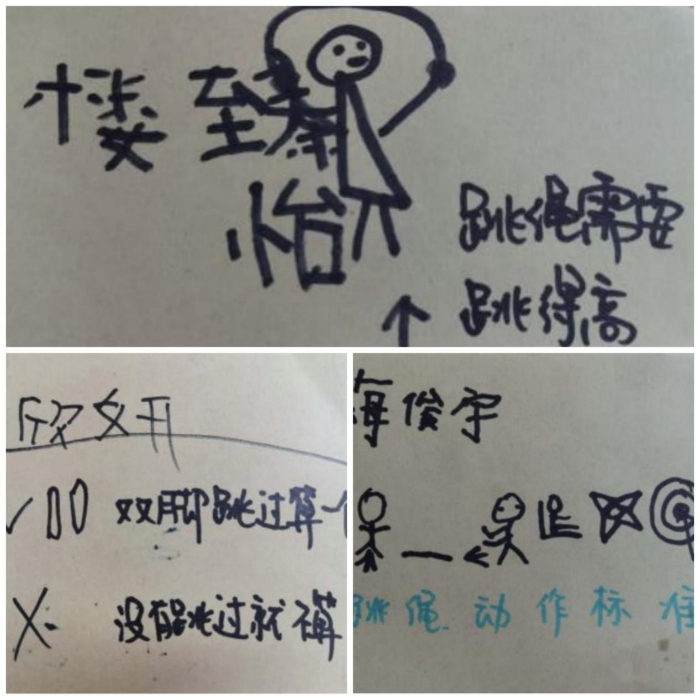 楼 至蓁
怡
跳绳需要
跳得高
欣妍
双脚跳过算一
没有跳过就不算
俊宇
跳绳动作标准